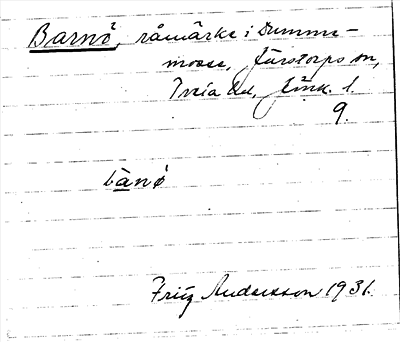 Barnö, råmärke i Dumme-
mosse, Järstorps sn,
Tveta hd, Jönk. l.
9.
banö
Fritz Andersson 1931.